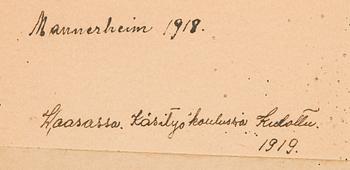 Mannerheim 1918.
Waasassa. Käsityökoulussa Kudottu.
1919.